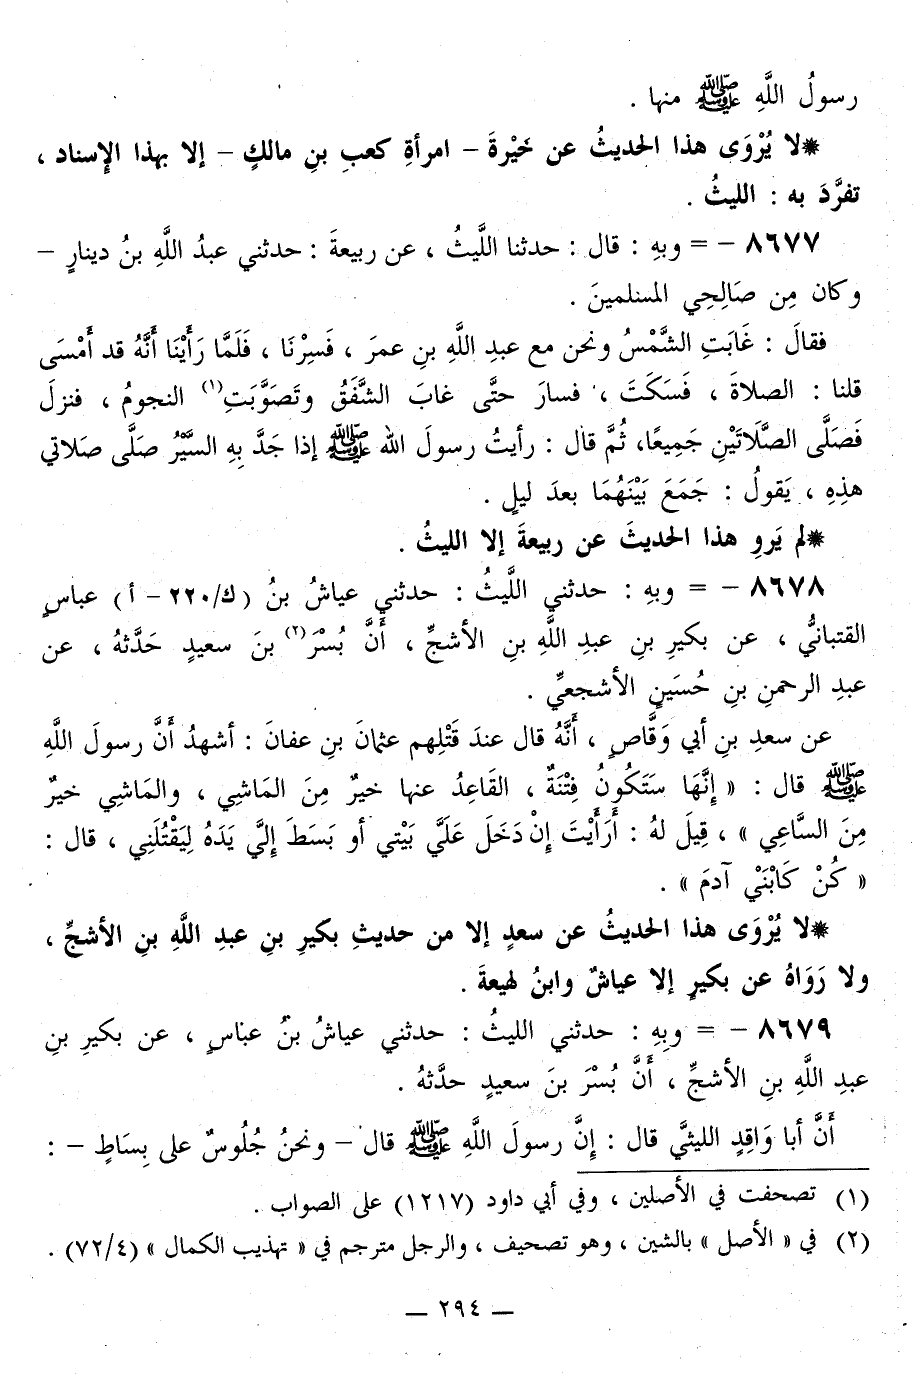 رسولُ اللَّهِ ﷺ منها .
※لا يُرْوَى هذا الحديثُ عن خَيْرةَ - امرأةِ كعبِ بنِ مالكٍ - إلا بهذا الإِسناد ،
تفرَّدَ به : الليثُ .
٨٦٧٧ - = وبهِ : قال : حدثنا اللَّيثُ ، عن ربيعةَ : حدثني عبدُ اللَّهِ بنُ دينارٍ -
وكان مِن صَالِحِي المسلمينَ .
فقالَ : غَابَتِ الشَّمْسُ ونحن مع عبدِ اللَّهِ بنِ عمرَ ، فَسِرْنَا ، فَلَمَّا رَأَيْنَا أَنَّهُ قد أَمْسَى
قلنا : الصلاةَ ، فَسَكَتَ ، فسارَ حتَّى غابَ الشَّفَقُ وتَصَوَّبَتِ(١) النجومُ ، فنزلَ
فَصَلَّى الصَّلَاتَيْنِ جَمِيعًا، ثُمَّ قال : رأيتُ رسولَ الله ﷺ إذا جَدَّ بِهِ السَّيْرُ صَلَّى صلاتي
هذِهِ ، يَقولُ : جَمَعَ بَيْنَهُمَا بعدَ ليلٍ .
※لم يَروِ هذا الحديثَ عن ربيعةَ إلا الليثُ .
٨٦٧٨ - = وبهِ : حدثني اللَّيثُ : حدثني عياشُ بنُ (ك/٢٢٠ - أ) عباسٍ
القتبانيُّ ، عن بكيرِ بنِ عبدِ اللَّهِ بنِ الأشجِّ ، أَنَّ بُسْرَ(٢) بنَ سعيدٍ حَدَّثهُ ، عن
عبدِ الرحمنِ بنِ حُسَينٍ الأشجعيِّ .
عن سعدِ بنِ أبي وَقَّاصٍ ، أَنَّهُ قال عندَ قَتْلِهم عثمانَ بنِ عفانَ : أشهدُ أنَّ رسولَ اللَّهِ
ﷺ قال : « إِنَّهَا سَتَكُونُ فِتْنَةٌ ، القَاعِدُ عنها خيرٌ مِنَ المَاشِي ، والمَاشِي خيرٌ
مِنَ السَّاعِي » ، قِيلَ لهُ : أَرَأَيْتَ إِنْ دَخَلَ عَلَيَّ بَيْتي أو بَسَطَ إِلَيَّ يَدَهُ لِيَقْتُلَنِي ، قال :
« كُنْ كَابْنَيْ آدمَ » .
※لا يُرْوَى هذا الحديثُ عن سعدٍ إلا من حديثِ بكيرِ بنِ عبدِ اللَّهِ بنِ الأشجِّ ،
ولا رَوَاهُ عن بكيرٍ إلا عياشٌ وابنُ لهيعةَ .
٨٦٧٩ - = وبِهِ : حدثني الليثُ : حدثني عياشُ بنُ عباسٍ ، عن بكيرِ بنِ
عبدِ اللَّهِ بنِ الأشجِّ ، أَنَّ بُسْرَ بنَ سعيدٍ حدَّثهُ .
أَنَّ أبا وَاقِدٍ الليثيَّ قال : إِنَّ رسولَ اللَّهِ ﷺ قال - ونحنُ جُلُوسٌ على بِسَاطٍ - :
(١) تصحفت في الأصلين ، وفي أبي داود (١٢١٧) على الصواب .
(٢) في « الأصل » بالشين ، وهو تصحيف ، والرجل مترجم في « تهذيب الكمال » (٧٢/٤) .
— ٢٩٤ —